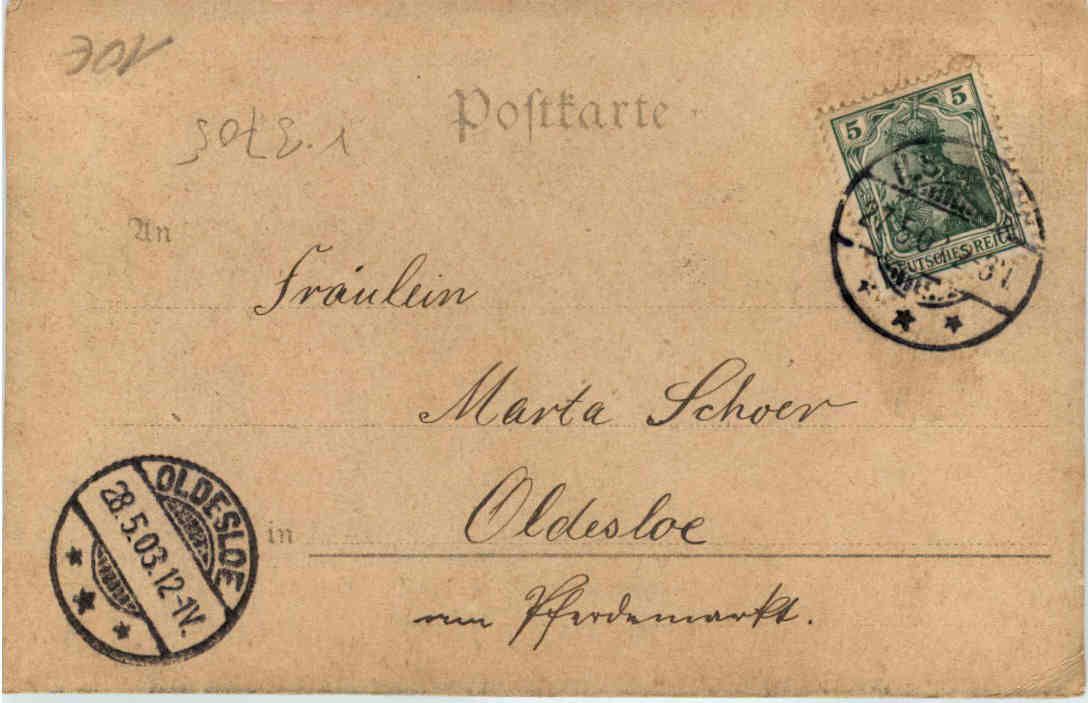 10€
Postkarte
5 5
DEUTSCHES REICH
An
Fräulein
Marta Schoer
in Oldesloe
am Pferdemarkt.
OLDESLOE
28.5.03.12-1V.